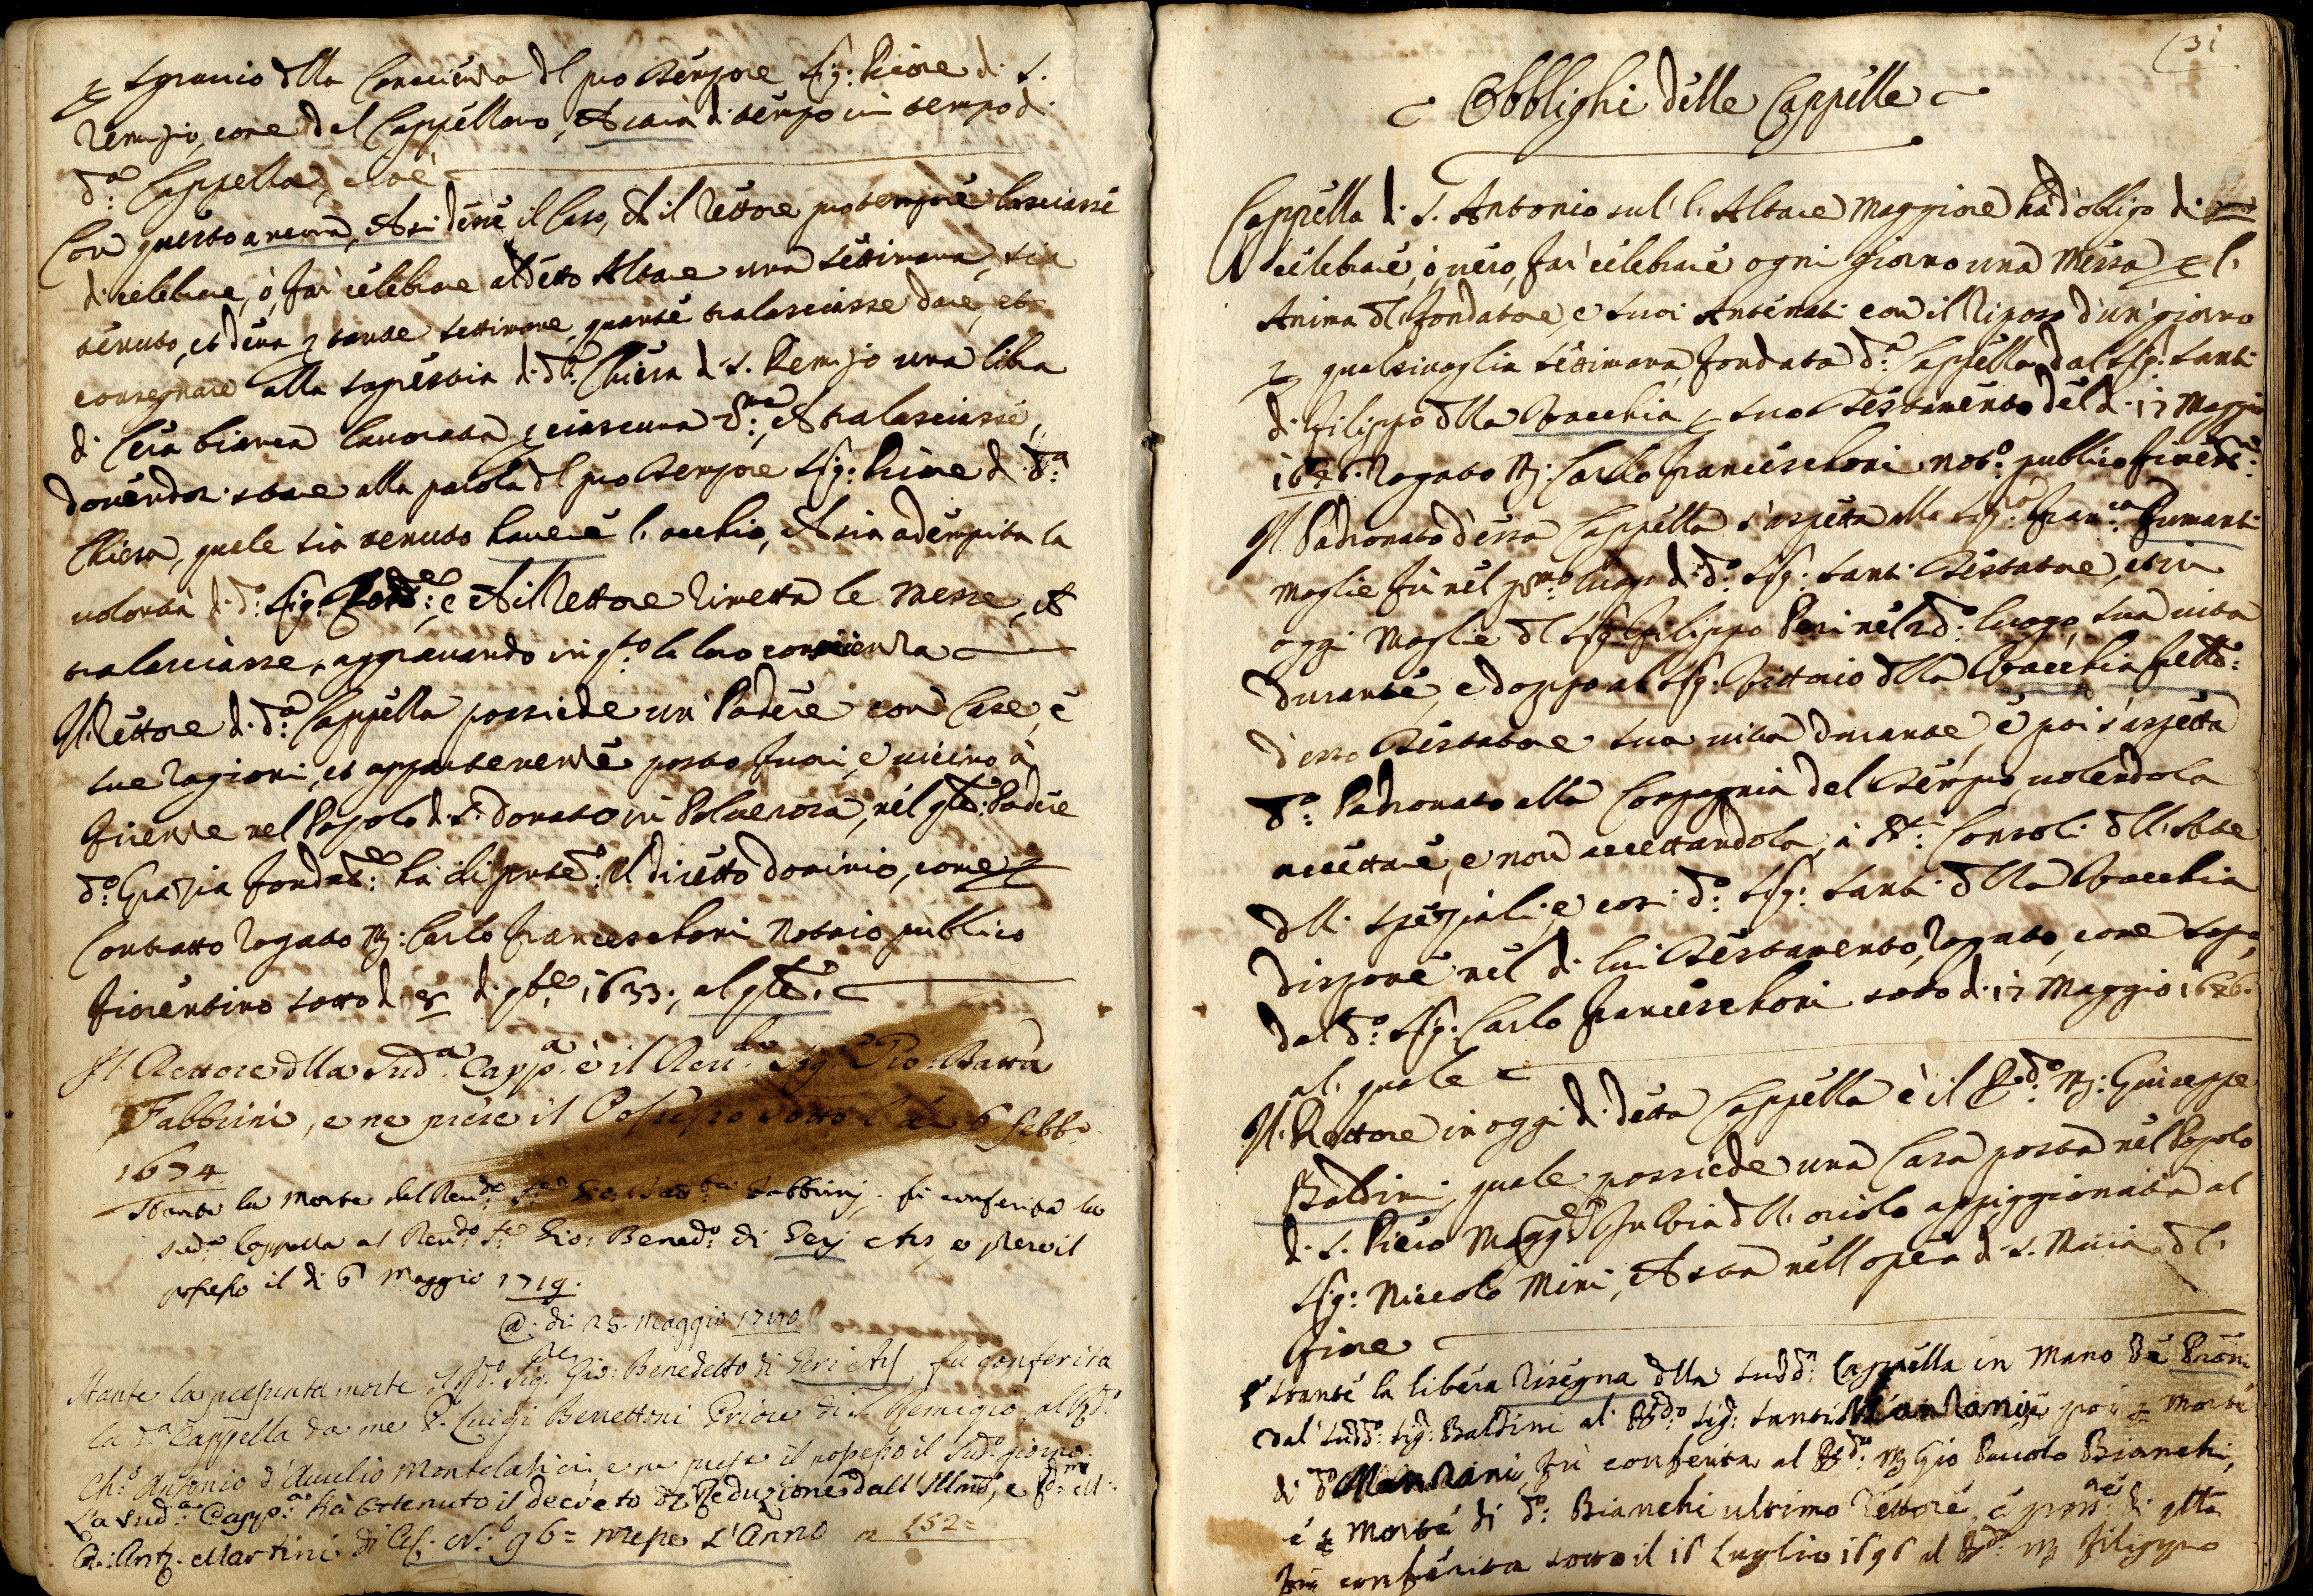 p sgrauio dlla Conscienza dl pro tempore Sig: Priore di S.
Remigio, come del Cappellano, che sarà di tempo in tempo di
d.a Cappella, cioè
Con questo ancora, che si desse il Caso, che il Rettore pro tempore lasciasse
di celebrare, ò far celebrare al detto Altare una settimana, sia
tenuto, et deua p tante settimane, quante tralasciasse dare, et
consegnare alla sagrestia di d.a Chiesa di S. Remigio una libra
di Cera bianca lauorata p ciascuna che tralasciasse,
douendosi stare alla parola dl pro tempore Sig: Priore di d.a
Chiesa, quale sia tenuto hauere l'occhio, che sia adempita la
uolontà di d.o Sig: e che il Rettore rimetta le Messe, che
tralasciasse, aggrauando in q.to la loro conscienza
Il Rettore di d.a Cappella possiede un Podere con Case, e
sue ragioni, et appartenenze posto fuori, e uicino à
Firenze nel Popolo di S. Donato in Poluerosa, nel q.le Podere
d.o Grazia fondat.e ha il diretto dominio, come p
Contratto rogato M: Carlo Franceschoni Notaio publico
fiorentino sotto dì 8 di 9bre 1633, al q.le
Il Rettore dlla Sud.a Capp.a è il Reu.do Sig.e Gio: Batta
Fabbrini, e ne prese il Possesso sotto li 6 febb.o
1674
Stante la Morte del Reu.do S.e Gio: Batta Fabbrini, fù conferita la
sud.a Cappella al Reu.do S.e Gio: Bened.o di Serj e prese il
possesso il di 6 Maggio 1719.
@ di 25. Maggio 1740
Stante la presunta morte Sig.re Gio: Benedetto di Seri fu conferita
la d.a Cappella da me P. Luigi Benettoni Priore di S. Remigio al
Ch.o Antonio d'Aurelio Montelatici, e ne prese il possesso il Sud.o giorno.
La Sud.a Capp.a ha ottenuto il decreto di Reduzione dall'Illmo, e
Antº. Martini di 96= messe l'Anno 152=
31
Obblighi delle Cappelle
Cappella di S. Antonio sul'l' Altare Maggiore ha d'obligo di
celebrare, ò uero, far celebrare ogni giorno una Messa p l'
Anima dl fondatore, e suoi Antenati con il riposo d'un giorno
p qualsiuoglia settimana, fondata d.a Cappella dal Sig: Santi
di Filippo dlla Vacchia p suo Testamento del dì 17 Maggio
1626. rogato M: Carlo Franceschoni not.o publico fioren.no
Il Padronato d'essa Cappella s'aspetta alla Sig.ra Fran.ca Fumanti
moglie fù nel p.mo luogo di d.o Sig: Santi Testatore, et in
oggi Moglie dl Sig: Filippo Peri nel 2.do luogo, sua uita
durante, e doppo al Sig: Vittorio dlla Vacchia
d'esso Testatore sua uita durante, e poi s'aspetta
d.o Padronato alla Compagnia del Tempio, uolendola
accettare, e non accettandola, à Consoli dll'Arte
dlli Speziali, e così d.o Sig: Santi dlla Vacchia
dispone nel di lui Testamento, rogato, come sop.a
dal d.o Sig: Carlo Franceschoni sotto dì 17 Maggio 1626.
al quale
Il Rettore in oggi di detta Cappella è il R.do M: Giuseppe
Baldini, quale possiede una Casa posta nel Popolo
di S. Piero Magg.re In Via dll' oriolo appiggionata al
Sig: Niccolò Mini, che sta nell'opera di S. Maria dl
fiore
Stante la libera risegna dlla sudd.a Cappella in mano
dal sudd.o Sig: Baldini al R.do Sig: Santi Manzani, poi p morte
di d.o Manzani, fù conferita al R.do M Gio Paolo Bianchi,
e p morte di d.o Bianchi ultimo rettore, e poss.re di q.lla
fù conferita sotto il 16 Luglio 1696 al R.do M Filippo